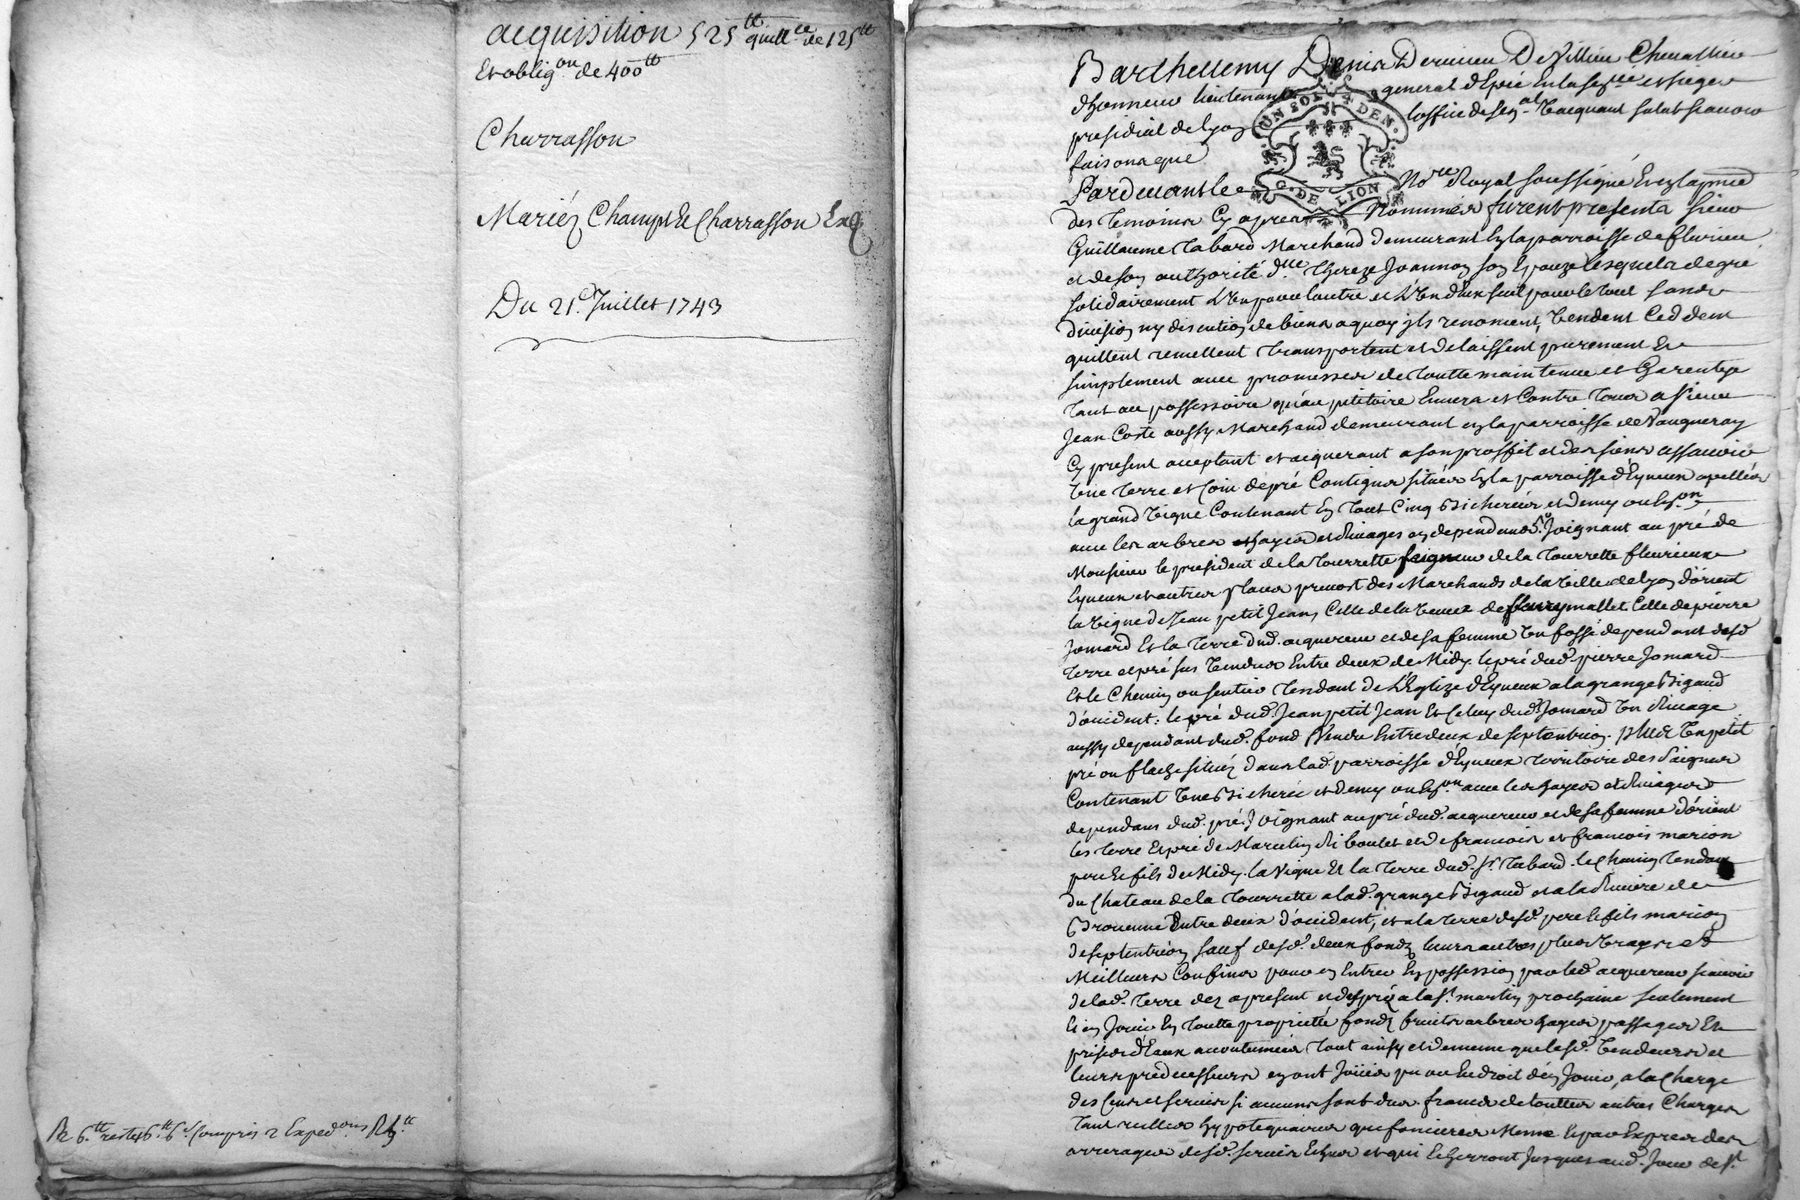 acquisition 525tt quittce de 125tt
Et obligon de 400tt
Charrasson
Mariéz Champt & Charrasson Exp
Du 21e Juillet 1743
R 6tt reste 6tt 6s Compris 2 Expedons
Barthellemy Denis Dervieu De Villieu Chevallier
dhonneur lieutenant general d'Epée En la senée et siege
presidial de lyon loffice de senal vacquant salut scavoir
faisons que
UN SOL 4 DEN.
G. DE LION
Pardevant le Nore Royal soussigné En la pnce
des temoins Cy apres Nommés furent presents sieur
Guillaume Tabard Marchand demeurant En la parroisse de fleurieu
et de son authorité dlle Thereze Joannon son Epouze lesquels de gré
solidairement L'un pour lautre et L'un d'eux seul pour le tout sans
division ny discution de biens a quoy ils renoncent, Vendent Ceddent
quittent remettent transportent et delaissent purement Et
simplement avec promesses de toutte maintenue et Garentye
tant au possessoire qu'au petitoire Envers et Contre tous a sieur
Jean Coste aussy Marchand demeurant en la parroisse de Vaugneray
Cy present acceptant et acquerant a son proffit et des siens assavoir
Une terre et Coin de pré Contigus situés En la parroisse d'Eyveux apellés
la grand Vigne Contenant En tout Cinq Bicherées et demy ou Enon
avec les arbres hayes et Suages en dependants Joignant au pré de
Monsieur le president de la tourrette seigneur de la tourrette fleurieux
Eyveux et autres places prevost des Marchands de la Ville de lyon d'orient
la Vigne de Jean petit Jean, Celle de la Veuve de fleury mallet Celle de pierre
Jomard Et la terre dud. acquereur et de sa femme Un fossé dependant desd.
terre et pré sus Vendus Entre deux de Midy, le pré dud. pierre Jomard
Et le Chemin ou sentier tendant de L'Eglize d'Eyveux a la grange Bigaud
d'occident: le pré dud. Jean petit Jean Et Celuy dud. Jomard Un Suage
aussy dependant dud. fond Vendu Entre deux de septentrion. plus Un petit
pré ou flache situéz dans lad. parroisse d'Eyveux territoire des Saignes
Contenant Une Bicherée et demy ou Enon avec les hayes et Suages
dependans dud. pré, Joignant au pré dud. acquereur et de sa femme d'orient
les terre Et pré de Marcelin Riboulet et de francois et francois marion
pere & fils de Midy. la Vigne Et la terre dud. Sr Tabard. le Chemin tendant
du Chateau de la tourrette a lad. grange Bigaud et a la Riviere de
Brevenne Entre deux d'occident, et a la terre desd. pere & fils marion
de septentrion sauf desd. deux fonds leurs autres plus vrays et
Meilleurs Confins pour en Entrer En possession par led. acquereur scavoir
de lad. terre dez a present et des prés a la St martin prochaine seulement
Et en Jouir En toutte proprieté fonds fruits arbres hayes passages Et
prises d'Eaux accoutumées tout ainsy et de meme que lesd. Vendeurs et
leurs predecesseurs en ont Jouis pu ou Eu droit d'en Jouir, a la Charge
des Cens et servis si aucuns sont dus francs de touttes autres Charges
tant utiles hypotequaires que foncieres Meme Et par Exprés des
arrerages desd. servis Echus et qui Echerront Jusques aud. Jour de St